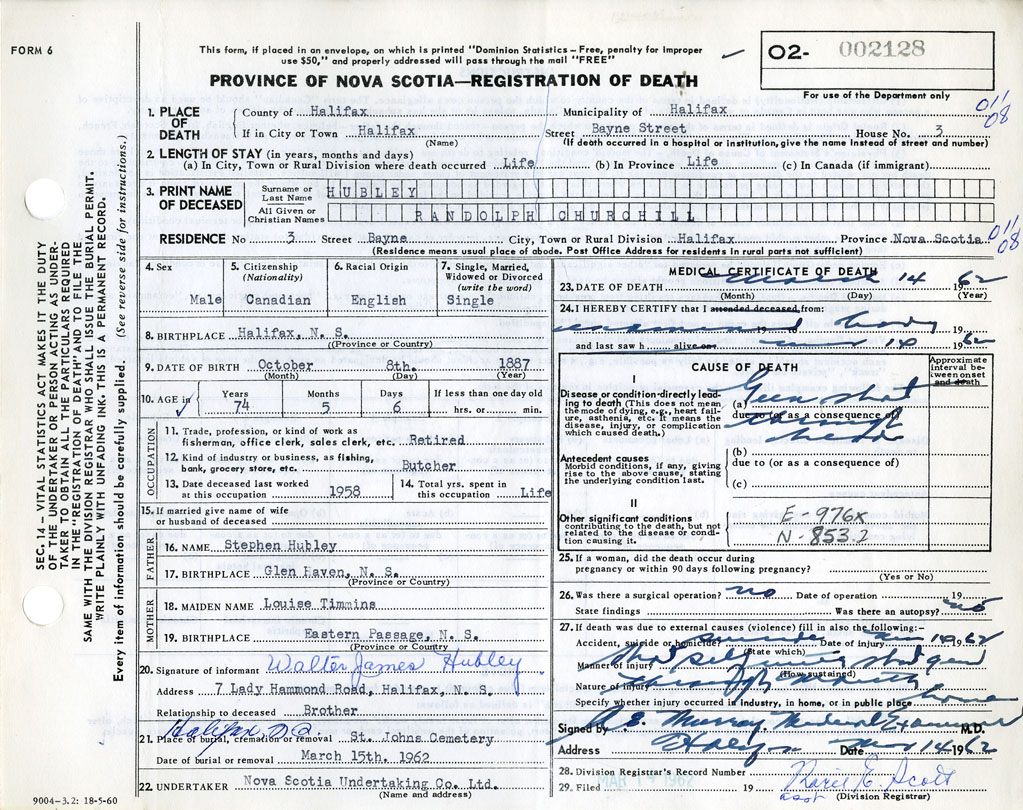 FORM 6
This form, if placed in an envelope, on which is printed "Dominion Statistics – Free, penalty for improper
use $50," and properly addressed will pass through the mail "FREE"
PROVINCE OF NOVA SCOTIA—REGISTRATION OF DEATH
O2- 002128
For use of the Department only
SEC. 14 – VITAL STATISTICS ACT MAKES IT THE DUTY
OF THE UNDERTAKER OR PERSON ACTING AS UNDER-
TAKER TO OBTAIN ALL THE PARTICULARS REQUIRED
IN THE "REGISTRATION OF DEATH" AND TO FILE THE
SAME WITH THE DIVISION REGISTRAR WHO SHALL ISSUE THE BURIAL PERMIT.
WRITE PLAINLY WITH UNFADING INK. THIS IS A PERMANENT RECORD.
Every item of information should be carefully supplied. (See reverse side for instructions.)
1. PLACE OF DEATH
County of Halifax Municipality of Halifax 011/08
If in City or Town Halifax Street Bayne Street House No. 3
(Name) (If death occurred in a hospital or institution, give the name instead of street and number)
2. LENGTH OF STAY (in years, months and days)
(a) In City, Town or Rural Division where death occurred Life (b) In Province Life (c) In Canada (if immigrant)
3. PRINT NAME OF DECEASED
Surname or Last Name HUBLEY
All Given or Christian Names RANDOLPH CHURCHILL
RESIDENCE No 3 Street Bayne City, Town or Rural Division Halifax Province Nova Scotia 011/08
(Residence means usual place of abode. Post Office Address for residents in rural parts not sufficient)
4. Sex Male
5. Citizenship (Nationality) Canadian
6. Racial Origin English
7. Single, Married, Widowed or Divorced (write the word) Single
8. BIRTHPLACE Halifax, N. S.
((Province or Country)
9. DATE OF BIRTH October 8th. 1887
(Month) (Day) (Year)
10. AGE in Years 74 Months 5 Days 6 If less than one day old hrs. or min.
OCCUPATION
11. Trade, profession, or kind of work as
fisherman, office clerk, sales clerk, etc. Retired
12. Kind of industry or business, as fishing,
bank, grocery store, etc. Butcher
13. Date deceased last worked
at this occupation 1958
14. Total yrs. spent in
this occupation Life
15. If married give name of wife
or husband of deceased
FATHER
16. NAME Stephen Hubley
17. BIRTHPLACE Glen Haven, N. S.
(Province or Country)
MOTHER
18. MAIDEN NAME Louise Timmins
19. BIRTHPLACE Eastern Passage, N. S.
(Province or Country)
20. Signature of informant Walter James Hubley
Address 7 Lady Hammond Road, Halifax, N. S.
Relationship to deceased Brother
Halifax
21. Place of burial, cremation or removal St. Johns Cemetery
Date of burial or removal March 15th. 1962
22. UNDERTAKER Nova Scotia Undertaking Co. Ltd.
(Name and address)
9004-3.2: 18-5-60
MEDICAL CERTIFICATE OF DEATH
23. DATE OF DEATH March 14 1962
(Month) (Day) (Year)
24. I HEREBY CERTIFY that I attended deceased from:
examined body 19
and last saw h alive on 14 1962
CAUSE OF DEATH
Approximate interval between onset and death
I
Disease or condition directly leading to death (This does not mean the mode of dying, e.g., heart failure, asthenia, etc. It means the disease, injury, or complication which caused death.)
(a) Gun shot
due to (or as a consequence of)
through head
Antecedent causes
Morbid conditions, if any, giving rise to the above cause, stating the underlying condition last.
(b)
due to (or as a consequence of)
(c)
II
Other significant conditions
contributing to the death, but not related to the disease or condition causing it.
E - 976X
N - 853.2
25. If a woman, did the death occur during
pregnancy or within 90 days following pregnancy?
(Yes or No)
26. Was there a surgical operation? no Date of operation 19
State findings Was there an autopsy? no
27. If death was due to external causes (violence) fill in also the following:-
Accident, suicide or homicide? suicide Date of injury 14 1962
(State which)
Manner of injury shot self using shot gun
(How sustained)
Nature of injury through mouth
Specify whether injury occurred in industry, in home, or in public place home
Signed by Murray Medical Examiner M.D.
Address Halifax Date Mar 14 1962
28. Division Registrar's Record Number
29. Filed MAR 1962 19
Asst E. Scott
(Division Registrar)